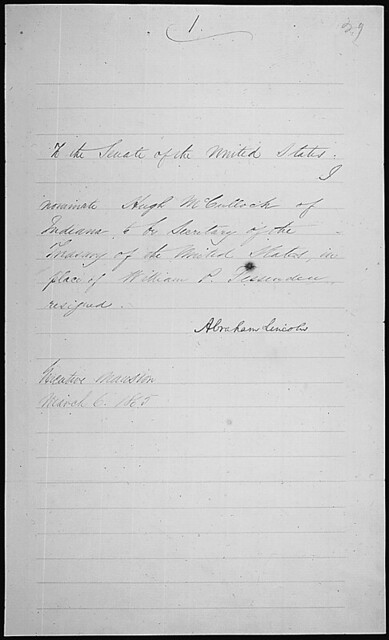 1.
29
To the Senate of the United States.
I
nominate Hugh McCulloch of
Indiana to be Secretary of the
Treasury of the United States, in
place of William P. Fessenden,
resigned.
Abraham Lincoln
Executive Mansion
March 6. 1865